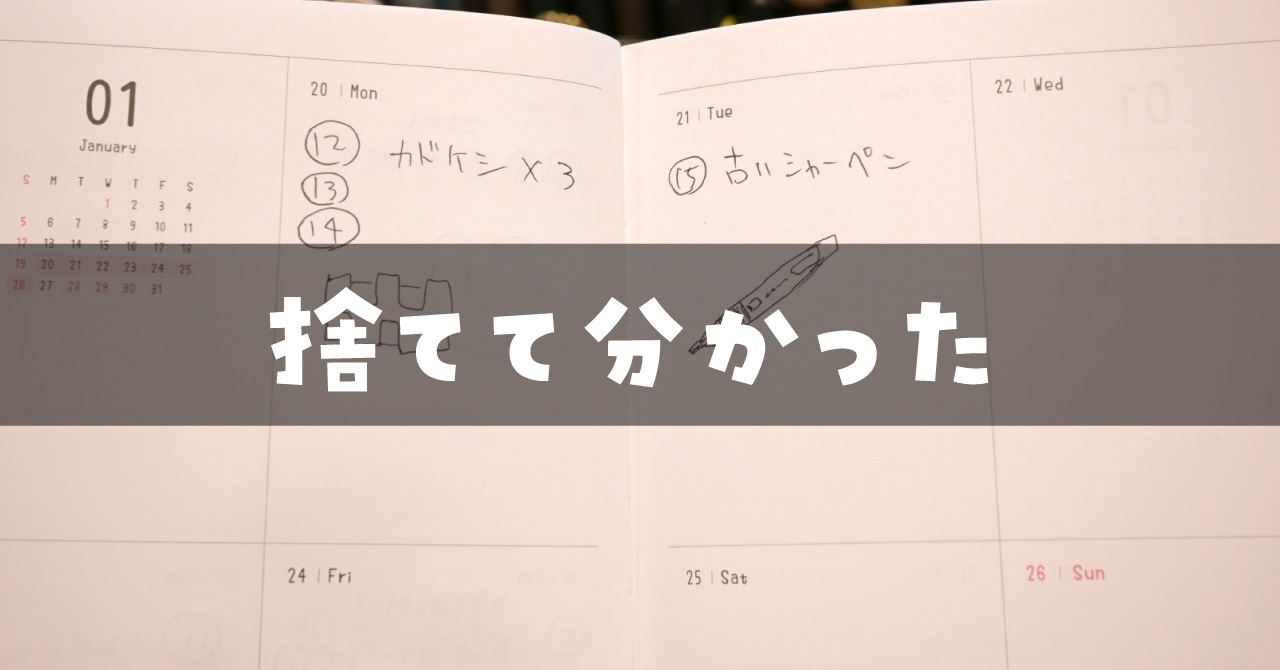 01
January
S M T W T F S
1 2 3 4
5 6 7 8 9 10 11
12 13 14 15 16 17 18
19 20 21 22 23 24 25
26 27 28 29 30 31
20 | Mon
⑫ カドケシ×3
⑬
⑭
21 | Tue
⑮ 古いシャーペン
22 | Wed
捨てて分かった
24 | Fri
25 | Sat
26 | Sun